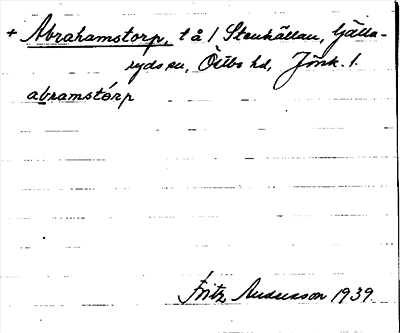 + Abrahamstorp, t å 1 Stenhällan, Gjälla-
ryds sn, Östbo hd, Jönk. l.
abramstórp
Fritz Andersson 1939.